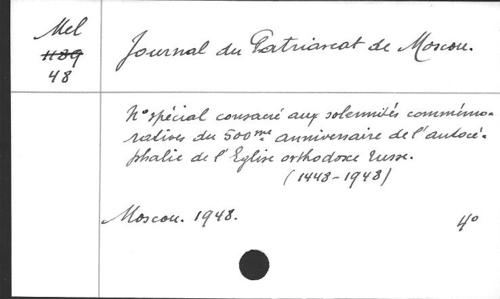 Mel
1189
48
Journal du Patriarcat de Moscou.
N° spécial consacré aux solemnités commémo-
ratives du 500me anniversaire de l'autocé-
phalie de l'Eglise orthodoxe russe.
(1448-1948)
Moscou. 1948.
4°